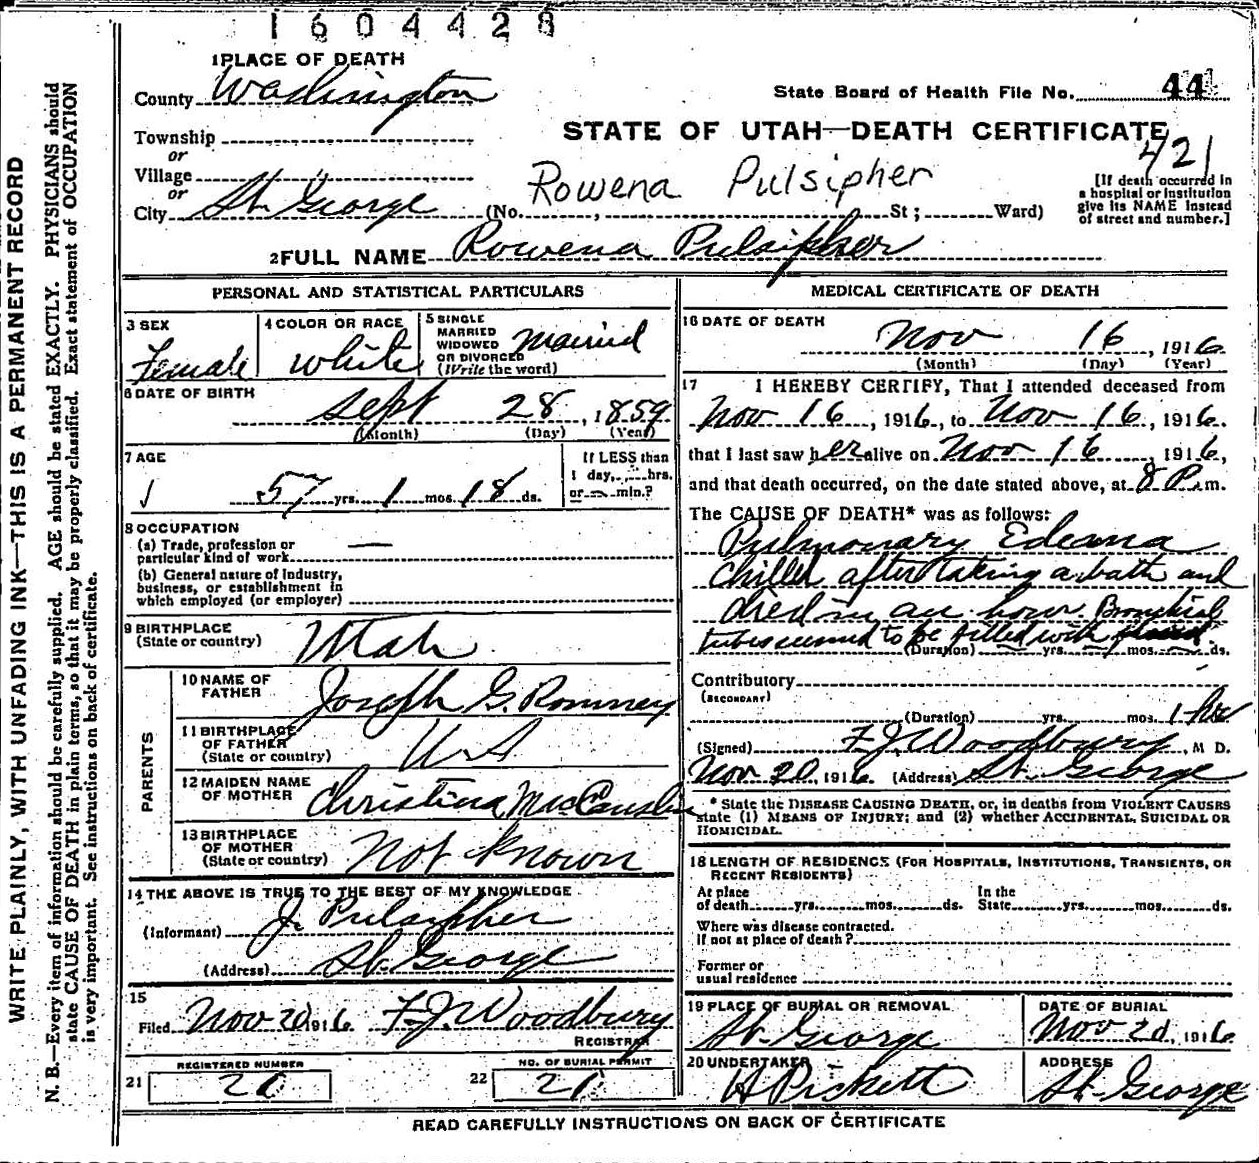 1604428
1 PLACE OF DEATH
County Washington
State Board of Health File No. 44
Township
STATE OF UTAH—DEATH CERTIFICATE
or
421
Village
Rowena Pulsipher
or
City St. George (No. , St ; Ward)
[If death occurred in
a hospital or institution
give its NAME instead
of street and number.]
2 FULL NAME Rowena Pulsipher
PERSONAL AND STATISTICAL PARTICULARS
3 SEX
Female
4 COLOR OR RACE
White
5 SINGLE
MARRIED
WIDOWED
OR DIVORCED
(Write the word)
Married
6 DATE OF BIRTH
Sept 28, 1859
(Month) (Day) (Year)
7 AGE
57 yrs. 1 mos. 18 ds.
If LESS than
1 day, hrs.
or min.?
8 OCCUPATION
(a) Trade, profession or
particular kind of work —
(b) General nature of Industry,
business, or establishment in
which employed (or employer)
9 BIRTHPLACE
(State or country) Utah
PARENTS
10 NAME OF
FATHER Joseph G. Romney
11 BIRTHPLACE
OF FATHER
(State or country) US
12 MAIDEN NAME
OF MOTHER Christina MacCauslin
13 BIRTHPLACE
OF MOTHER
(State or country) Not Known
14 THE ABOVE IS TRUE TO THE BEST OF MY KNOWLEDGE
(Informant) J. Pulsipher
(Address) St. George
15
Filed Nov 20 1916 F.J. Woodbury
REGISTRAR
REGISTERED NUMBER
21
NO. OF BURIAL PERMIT
22
MEDICAL CERTIFICATE OF DEATH
16 DATE OF DEATH
Nov 16, 1916
(Month) (Day) (Year)
17 I HEREBY CERTIFY, That I attended deceased from
Nov 16, 1916, to Nov 16, 1916.
that I last saw her alive on Nov 16, 1916,
and that death occurred, on the date stated above, at 8 P. m.
The CAUSE OF DEATH* was as follows:
Pulmonary Edeama
Chilled after taking a bath and
died in an hour. Bronchial
tubes seemed to be filled with
(Duration) yrs. mos. ds.
Contributory
(SECONDARY)
(Duration) yrs. mos. 1 hr
(Signed) F.J. Woodbury, M D.
Nov 20, 1916. (Address) St. George
* State the DISEASE CAUSING DEATH, or, in deaths from VIOLENT CAUSES
state (1) MEANS OF INJURY; and (2) whether ACCIDENTAL, SUICIDAL OR
HOMICIDAL.
18 LENGTH OF RESIDENCE (FOR HOSPITALS, INSTITUTIONS, TRANSIENTS, OR
RECENT RESIDENTS)
At place
of death yrs. mos. ds.
In the
State yrs. mos. ds.
Where was disease contracted.
If not at place of death?
Former or
usual residence
19 PLACE OF BURIAL OR REMOVAL
St. George
DATE OF BURIAL
Nov 20, 1916
20 UNDERTAKER
A Pickett
ADDRESS
St. George
READ CAREFULLY INSTRUCTIONS ON BACK OF CERTIFICATE
WRITE PLAINLY, WITH UNFADING INK—THIS IS A PERMANENT RECORD
N. B.—Every item of information should be carefully supplied. AGE should be stated EXACTLY. PHYSICIANS should
state CAUSE OF DEATH in plain terms, so that it may be properly classified. Exact statement of OCCUPATION
is very important. See instructions on back of certificate.